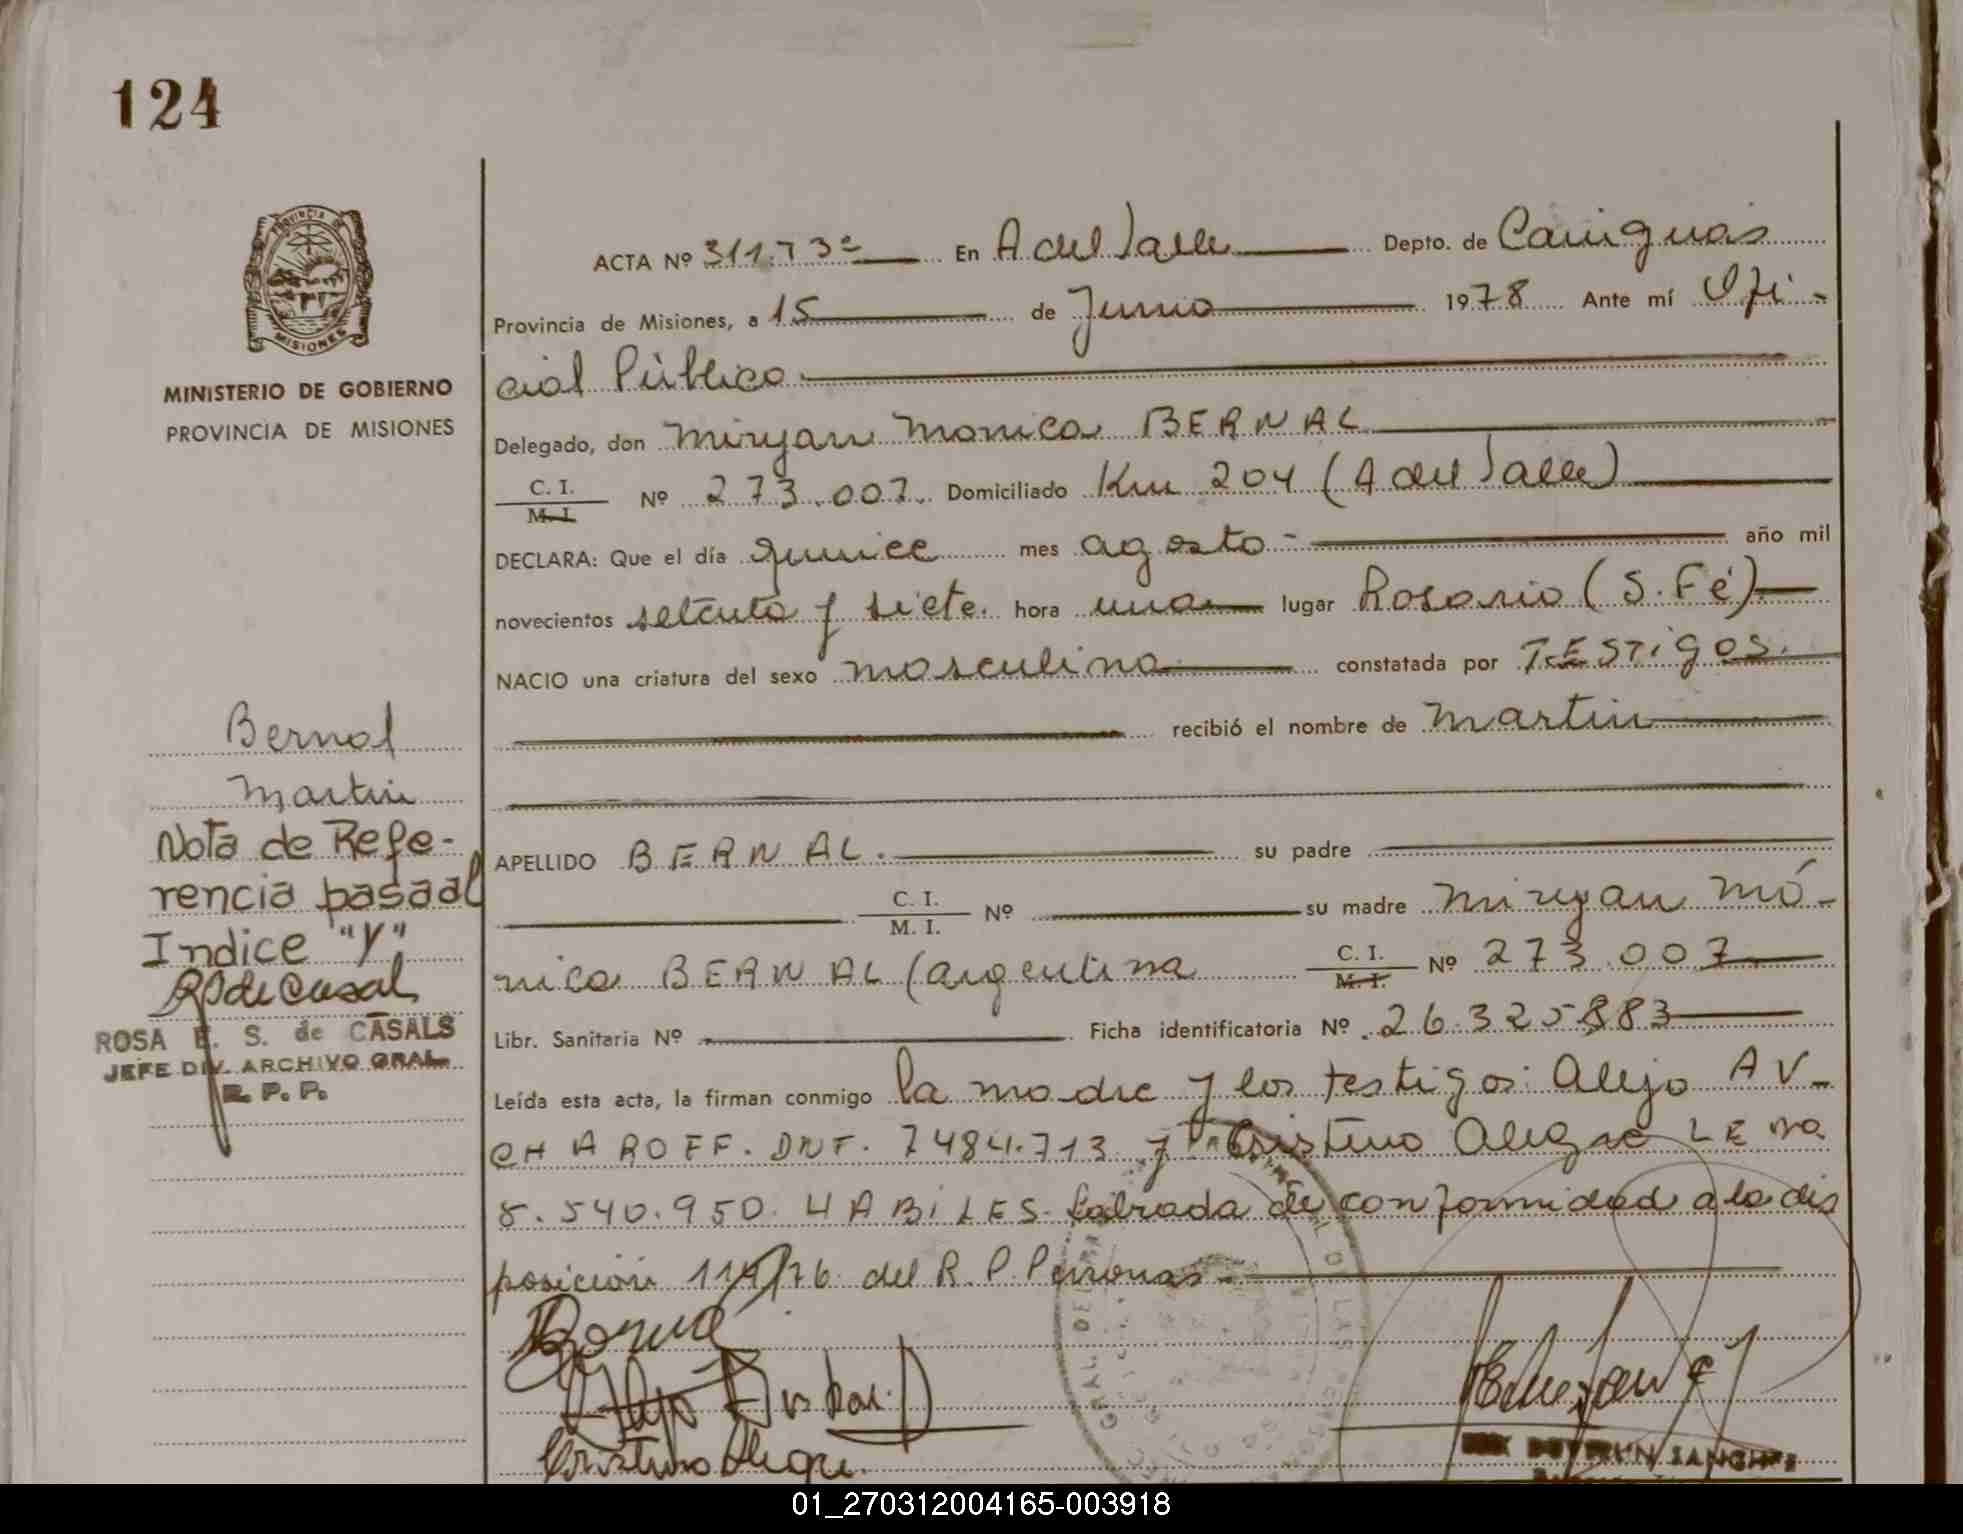 124
PROVINCIA DE
MISIONES
MINISTERIO DE GOBIERNO
PROVINCIA DE MISIONES
ACTA Nº 311.T3º En A del Valle Depto. de Cainguás
Provincia de Misiones, a 15 de Junio 1978 Ante mí Ofi-
cial Público
Delegado, don Miryan Monica BERNAL
C. I.
M. I. Nº 273.007. Domiciliado Km 204 (A del Valle)
DECLARA: Que el día quince mes agosto - año mil
novecientos setenta y siete. hora una lugar Rosario (S. Fé)
NACIO una criatura del sexo masculino constatada por TESTIGOS.
recibió el nombre de Martin
APELLIDO BERNAL. su padre
C. I.
M. I. Nº su madre Miryan Mó-
nica BERNAL (argentina C. I.
M. I. Nº 273.007
Libr. Sanitaria Nº Ficha identificatoria Nº 26.325.883
Leída esta acta, la firman conmigo la madre y los testigos: Alejo AV-
CHAROFF. DNI. 7484.713 y Cristino Alegre LE no
8.540.950. HABILES. Labrada de conformidad a la dis
posición 114/76 del R. P. Personas -
Cristino Alegre.
Bernal
Martin
Nota de Refe-
rencia pasada al
Indice "Y"
R S de Casals
ROSA E. S. de CASALS
JEFE DIV. ARCHIVO GRAL.
R. P. P.
01_270312004165-003918